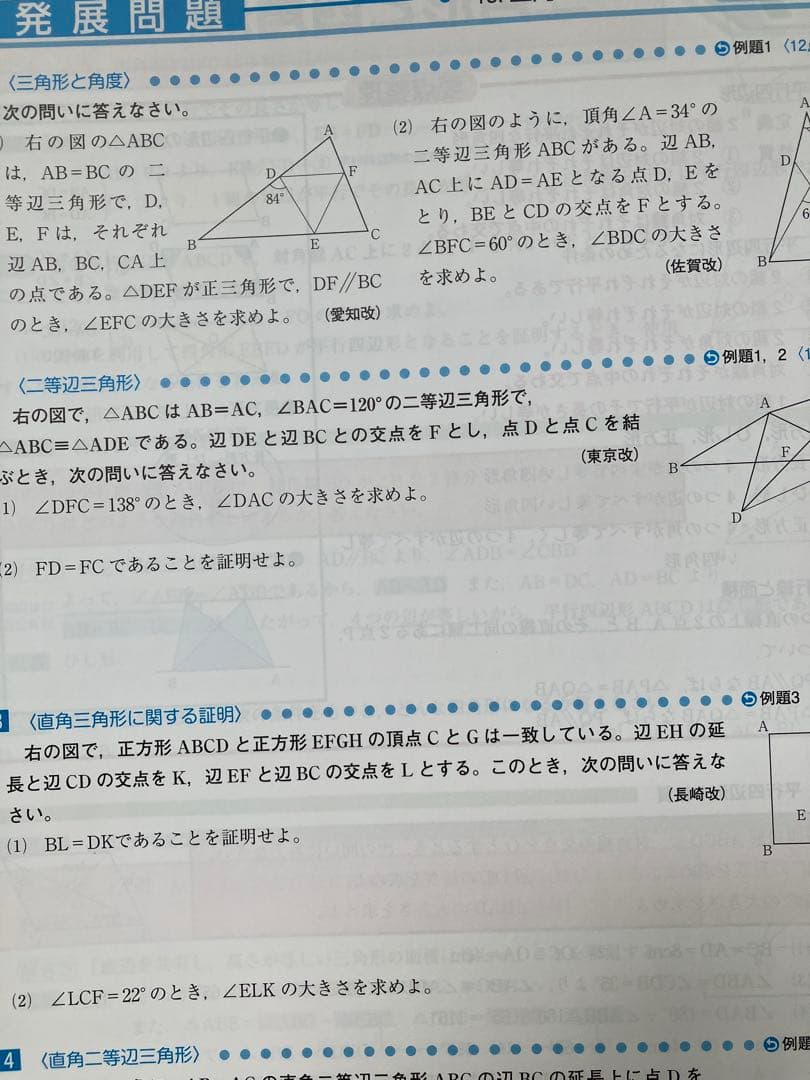 発展問題
例題1
〈三角形と角度〉
次の問いに答えなさい。
右の図の△ABC
は，AB=BC の 二
等辺三角形で，D，
E，F は，それぞれ
辺 AB，BC，CA 上
の点である。△DEF が正三角形で，DF//BC
のとき，∠EFC の大きさを求めよ。 (愛知改)
A
D
F
84°
B
E
C
(2) 右の図のように，頂角∠A=34° の
二等辺三角形 ABC がある。辺 AB，
AC 上に AD=AE となる点 D，E を
とり，BE と CD の交点を F とする。
∠BFC=60° のとき，∠BDC の大きさ
を求めよ。 (佐賀改)
D
B
例題1，2
〈二等辺三角形〉
右の図で，△ABC は AB=AC，∠BAC=120° の二等辺三角形で，
△ABC≡△ADE である。辺 DE と辺 BC との交点を F とし，点 D と点 C を結
ぶとき，次の問いに答えなさい。 (東京改)
1) ∠DFC=138° のとき，∠DAC の大きさを求めよ。
(2) FD=FC であることを証明せよ。
A
B
F
D
3 〈直角三角形に関する証明〉 例題3
右の図で，正方形 ABCD と正方形 EFGH の頂点 C と G は一致している。辺 EH の延
長と辺 CD の交点を K，辺 EF と辺 BC の交点を L とする。このとき，次の問いに答えな
さい。 (長崎改)
(1) BL=DK であることを証明せよ。
(2) ∠LCF=22° のとき，∠ELK の大きさを求めよ。
A
E
B
4 〈直角二等辺三角形〉